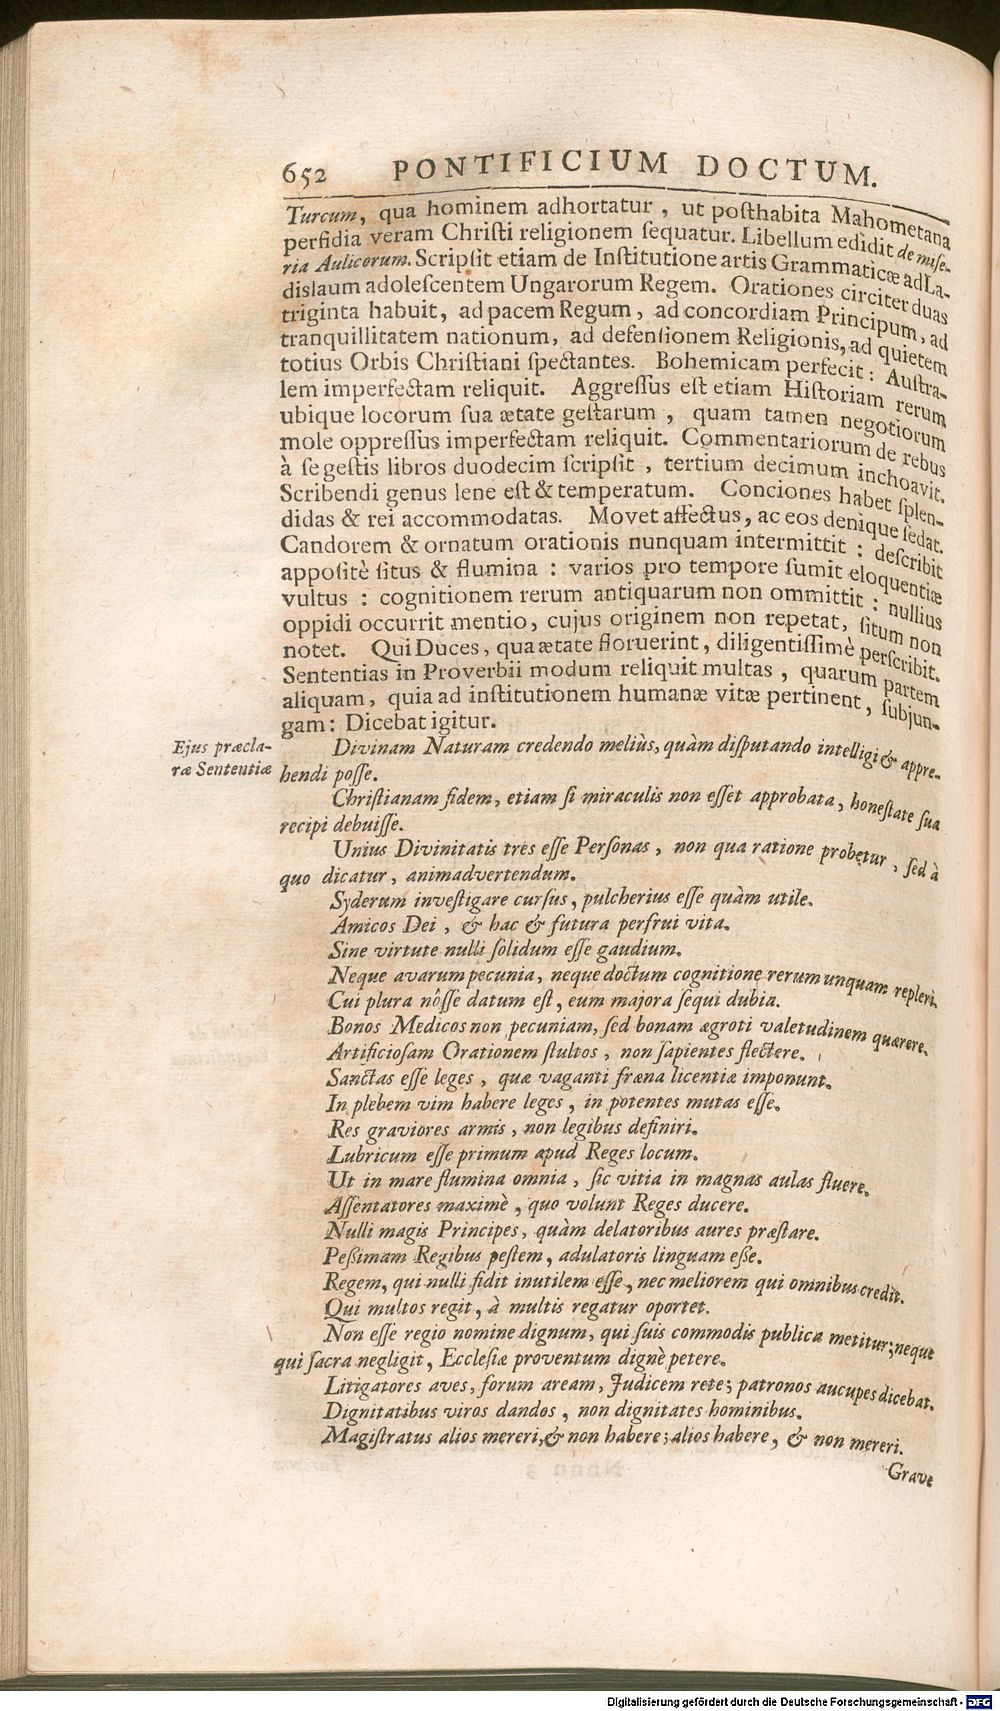 652 PONTIFICIUM DOCTUM.
Turcum, qua hominem adhortatur, ut posthabita Mahometana
perfidia veram Christi religionem sequatur. Libellum edidit de mise-
ria Aulicorum. Scripsit etiam de Institutione artis Grammaticæ ad La-
dislaum adolescentem Ungarorum Regem. Orationes circiter duas
triginta habuit, ad pacem Regum, ad concordiam Principum, ad
tranquillitatem nationum, ad defensionem Religionis, ad quietem
totius Orbis Christiani spectantes. Bohemicam perfecit: Austra-
lem imperfectam reliquit. Aggressus est etiam Historiam rerum
ubique locorum sua ætate gestarum, quam tamen negotiorum
mole oppressus imperfectam reliquit. Commentariorum de rebus
à se gestis libros duodecim scripsit, tertium decimum inchoavit.
Scribendi genus lene est & temperatum. Conciones habet splen-
didas & rei accommodatas. Movet affectus, ac eos denique sedat.
Candorem & ornatum orationis nunquam intermittit: describit
appositè situs & flumina: varios pro tempore sumit eloquentiæ
vultus: cognitionem rerum antiquarum non ommittit: nullius
oppidi occurrit mentio, cujus originem non repetat, situm non
notet. Qui Duces, qua ætate floruerint, diligentissimè perscribit.
Sententias in Proverbii modum reliquit multas, quarum partem
aliquam, quia ad institutionem humanæ vitæ pertinent, subjun-
gam: Dicebat igitur.
Ejus præcla-
ræ Sententiæ
Divinam Naturam credendo meliùs, quàm disputando intelligi & appre-
hendi posse.
Christianam fidem, etiam si miraculis non esset approbata, honestate sua
recipi debuisse.
Unius Divinitatis tres esse Personas, non qua ratione probetur, sed à
quo dicatur, animadvertendum.
Syderum investigare cursus, pulcherius esse quàm utile.
Amicos Dei, & hac & futura perfrui vita.
Sine virtute nulli solidum esse gaudium.
Neque avarum pecunia, neque doctum cognitione rerum unquam repleri.
Cui plura nôsse datum est, eum majora sequi dubia.
Bonos Medicos non pecuniam, sed bonam ægroti valetudinem quærere.
Artificiosam Orationem stultos, non sapientes flectere.
Sanctas esse leges, quæ vaganti fræna licentiæ imponunt.
In plebem vim habere leges, in potentes mutas esse.
Res graviores armis, non legibus definiri.
Lubricum esse primum apud Reges locum.
Ut in mare flumina omnia, sic vitia in magnas aulas fluere.
Assentatores maximè, quo volunt Reges ducere.
Nulli magis Principes, quàm delatoribus aures præstare.
Pessimam Regibus pestem, adulatoris linguam esse.
Regem, qui nulli fidit inutilem esse, nec meliorem qui omnibus credit.
Qui multos regit, à multis regatur oportet.
Non esse regio nomine dignum, qui suis commodis publica metitur; neque
qui sacra negligit, Ecclesiæ proventum dignè petere.
Litigatores aves, forum aream, Judicem rete; patronos aucupes dicebat.
Dignitatibus viros dandos, non dignitates hominibus.
Magistratus alios mereri, & non habere; alios habere, & non mereri.
Grave
Digitalisierung gefördert durch die Deutsche Forschungsgemeinschaft - DFG